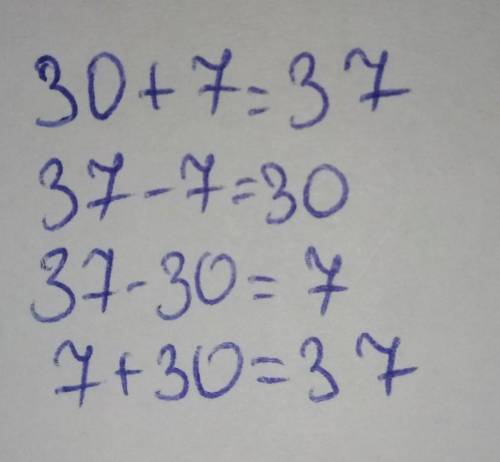 30+7=37
37-7=30
37-30=7
7+30=37